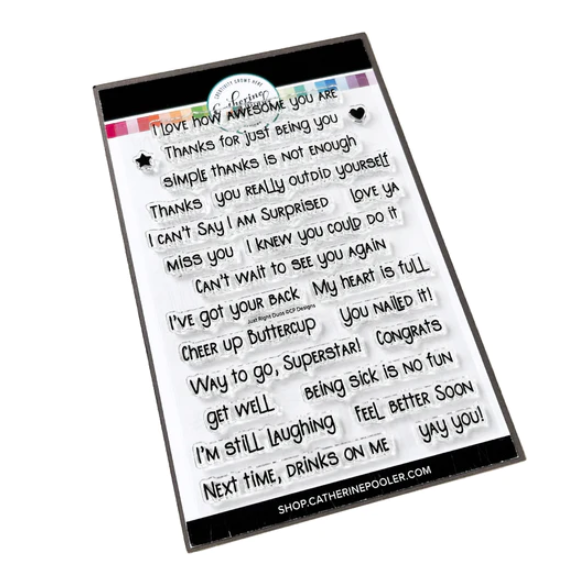 CREATIVITY GROWS HERE
Catherine
I love how awesome you are
Thanks for just being you
simple thanks is not enough
Thanks you really outdid yourself
I can't say I am surprised Love ya
miss you I knew you could do it
Can't wait to see you again
I've got your back My heart is full
Just Right Duos ©CP Designs
Cheer up Buttercup You nailed it!
Way to go, Superstar! Congrats
get well being sick is no fun
I'm still laughing feel better soon
Next time, drinks on me yay you!
SHOP.CATHERINEPOOLER.COM